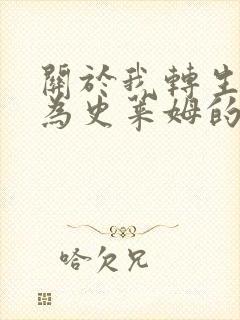 關於我轉生
為史萊姆的
哈欠兄